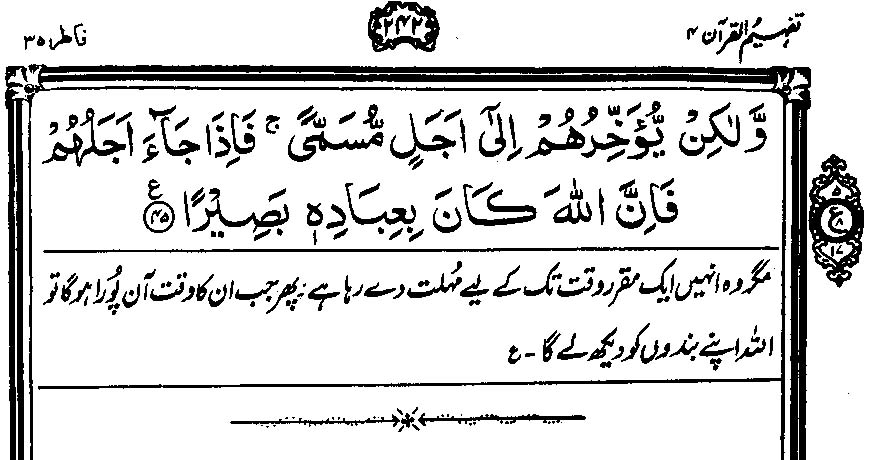 تفہیم القرآن ۴
۲۴۲
فاطر ۳۵
وَّلٰكِنْ يُّؤَخِّرُهُمْ اِلٰٓى اَجَلٍ مُّسَمًّى ۚ فَاِذَا جَآءَ اَجَلُهُمْ
فَاِنَّ اللّٰهَ كَانَ بِعِبَادِهٖ بَصِيْرًا ﴿۴۵﴾ ع
۵
ع ۸
۱۷
مگر وہ انہیں ایک مقرر وقت تک کے لیے مُہلت دے رہا ہے، پھر جب ان کا وقت آن پُورا ہوگا تو
اللہ اپنے بندوں کو دیکھ لے گا۔ ع